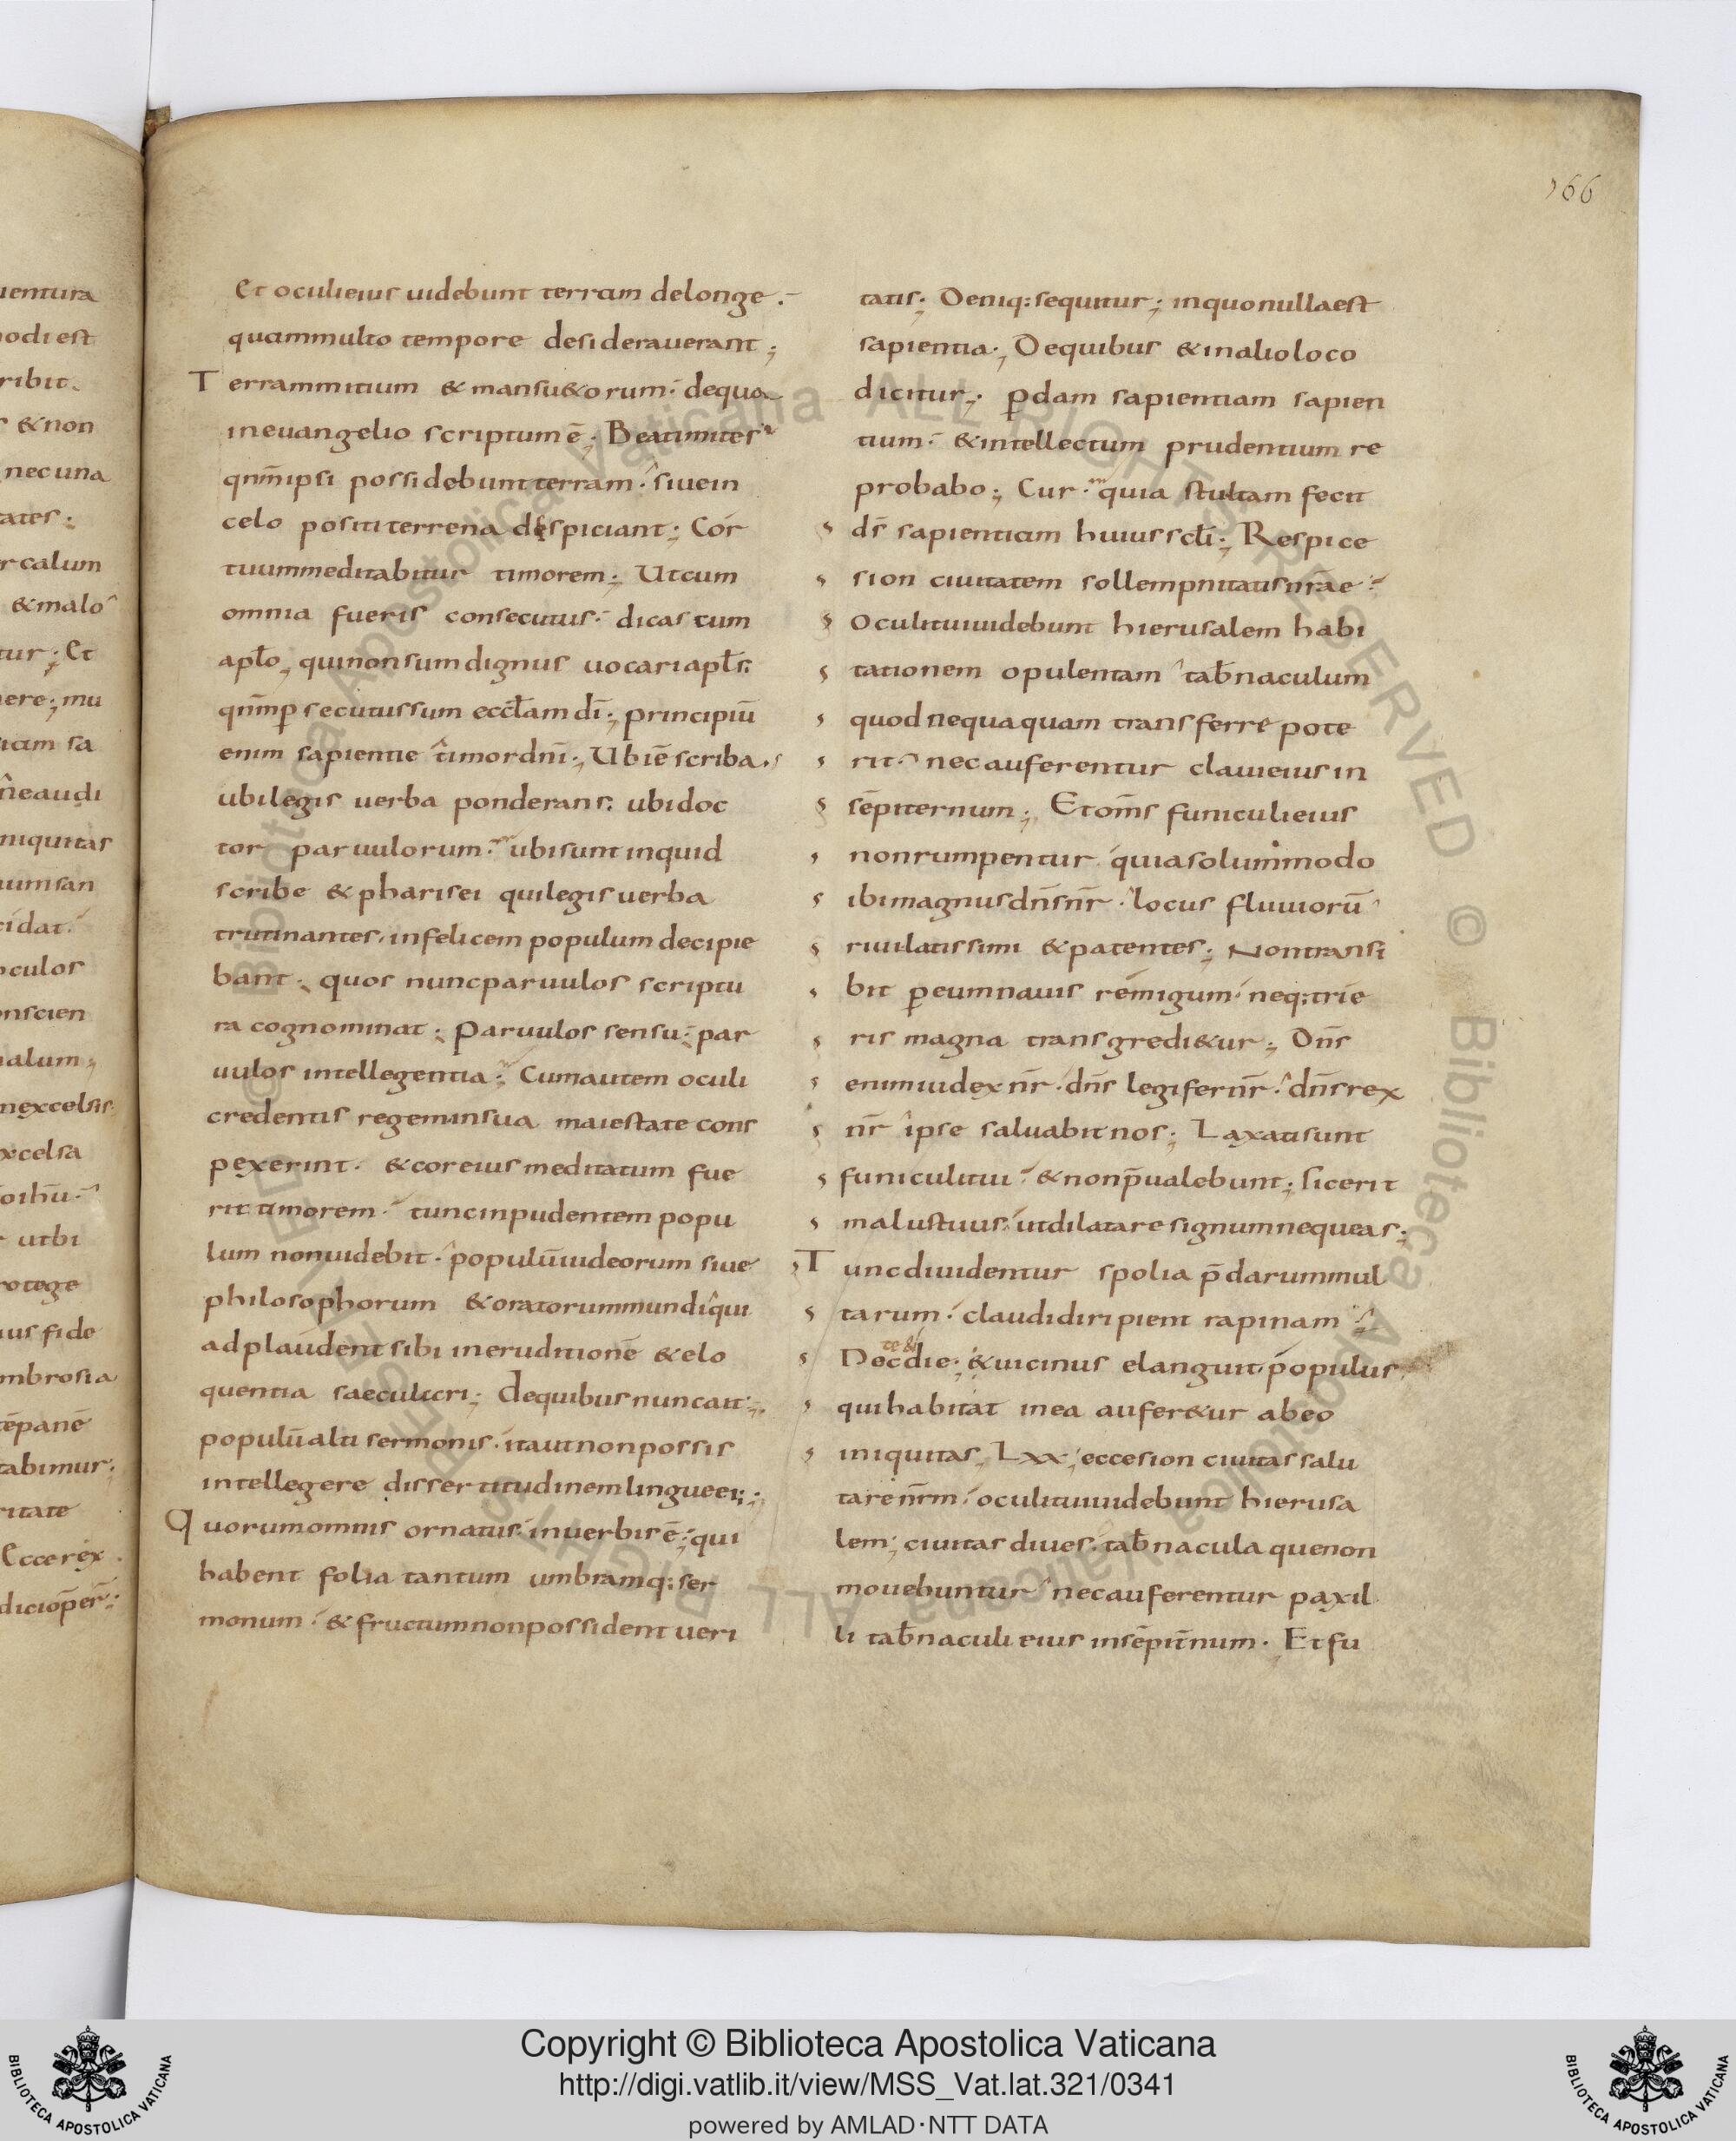 166
Et oculi eius uidebunt terram de longe.
quam multo tempore desiderauerant;
Terram mitium & mansu&orum. de qua
in euangelio scriptum ē; Beati mites
qnm̄ ipsi possidebunt terram. siue in
celo positi terrena despiciant; Cor
tuum meditabitur timorem; Ut cum
omnia fueris consecutus. dicas cum
apl̄o, qui non sum dignus uocari apl̄s.
qnm̄ p̱secutus sum eccl̄am dī; principiū
enim sapientie timor dnī; Ubi ē scriba,
ubi legis uerba ponderans. ubi doc
tor paruulorum. ubi sunt inquid
scribe & pharisei qui legis uerba
trutinantes. infelicem populum decipie
bant. quos nunc paruulos scriptu
ra cognominat; paruulos sensu. par
uulos intellegentia; Cum autem oculi
credentis regem in sua maiestate cons
pexerint. & cor eius meditatum fue
rit timorem. tunc inpudentem popu
lum non uidebit. populū iudeorum siue
philosophorum & oratorum mundi qui
adplaudent sibi in eruditionē & elo
quentia saeculari; de quibus nunc ait;
populū alti sermonis. ita ut non possis
intellegere dissertitudinem lingue ei;
Quorum omnis ornatus. in uerbis ē; qui
habent folia tantum umbramq; ser
monum. & fructum non possident ueri
tatis; Deniq; sequitur; in quo nulla est
sapientia; De quibus & in alio loco
dicitur; p̱dam sapientiam sapien
tium. & intellectum prudentium re
probabo; Cur. quia stultam fecit
ds̄ sapientiam huius scl̄i; Respice
sion ciuitatem sollempnitatis nrāe.
Oculi tui uidebunt hierusalem habi
tationem opulentam tab̄naculum
quod nequaquam transferre pote
rit. nec auferentur claui eius in
sēpiternum; Et om̄s funiculi eius
non rumpentur. quia solummodo
ibi magnus dn̄s nr̄. locus fluuiorū
riui latissimi & patentes; Non transi
bit p̱ eum nauis remigum. neq; trie
ris magna transgredi&ur; Dn̄s
enim iudex nr̄. dn̄s legifer nr̄. dn̄s rex
nr̄ ipse saluabit nos; Laxati sunt
funiculi tui. & non p̄ualebunt; sic erit
malus tuus. ut dilatare signum nequeas;
Tunc diuidentur spolia p̄darum mul
tarum. claudi diripient rapinam
Nec die; & uicinus elanguit. populus
qui habitat in ea aufer&ur ab eo
iniquitas; Lxx; ecce sion ciuitas salu
tare nr̄m. oculi tui uidebunt hierusa
lem; ciuitas diues. tab̄nacula que non
mouebuntur nec auferentur paxil
li tab̄naculi eius in sēpit̄num. Et fu
Copyright © Biblioteca Apostolica Vaticana
http://digi.vatlib.it/view/MSS_Vat.lat.321/0341
powered by AMLAD·NTT DATA
BIBLIOTECA APOSTOLICA VATICANA
BIBLIOTECA APOSTOLICA VATICANA